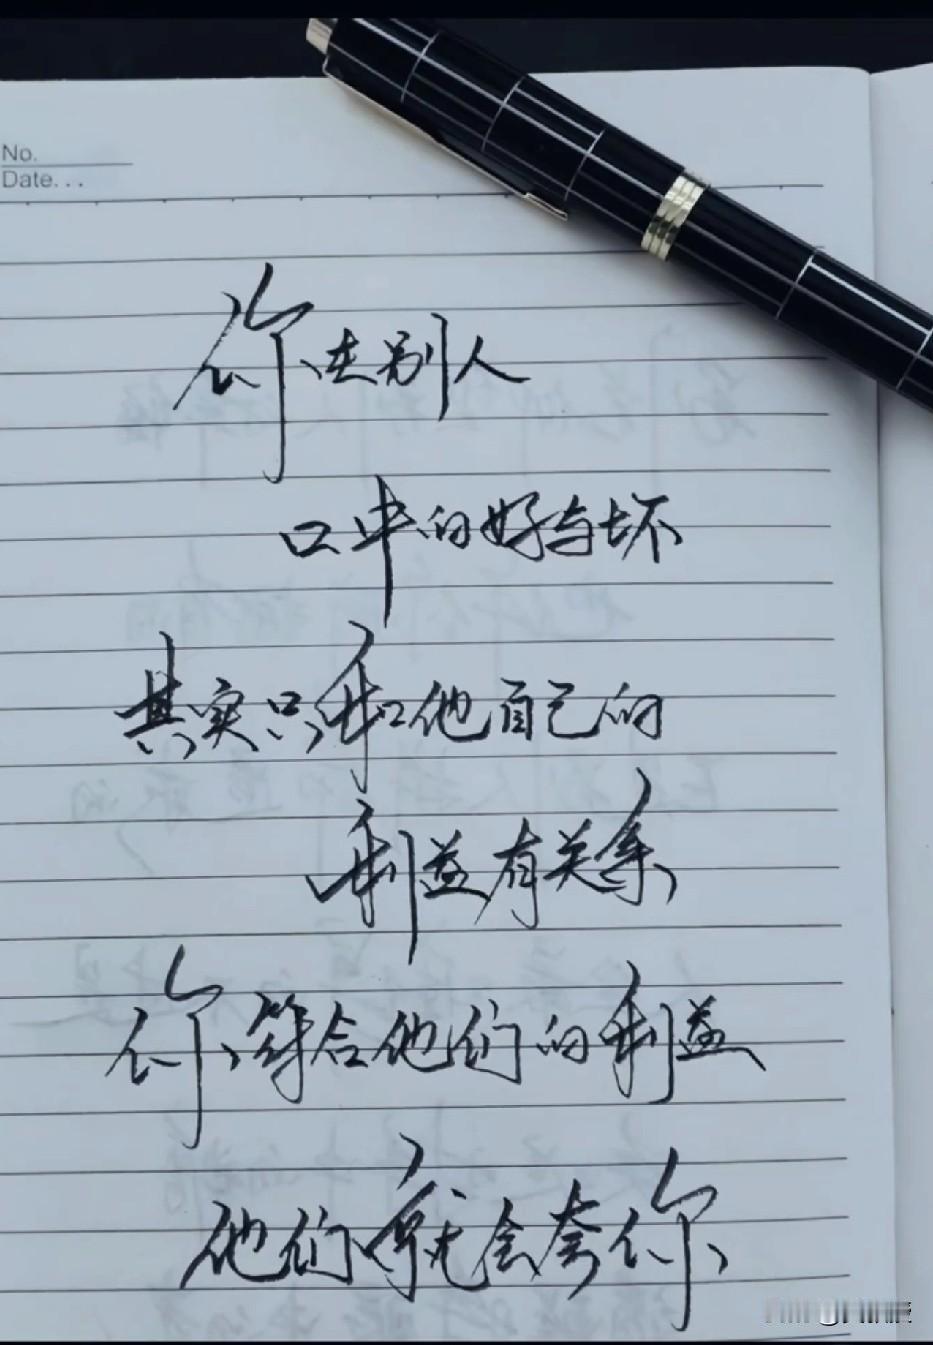 No.
Date...
你在别人
口中的好与坏
其实只和他自己的
利益有关系
你符合他们的利益
他们就会夸你